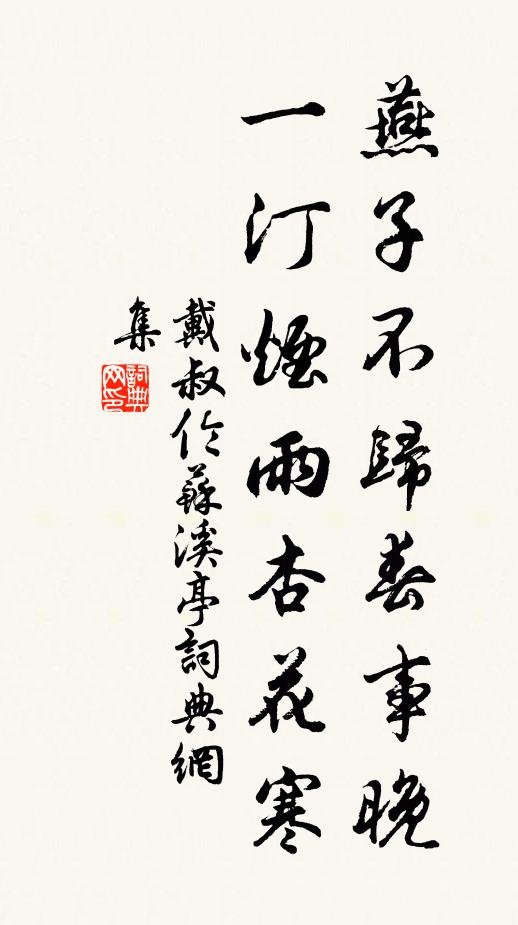 燕子不歸春事晚
一汀煙雨杏花寒
戴叔伦蘇溪亭詞典網
集
詞典
网印